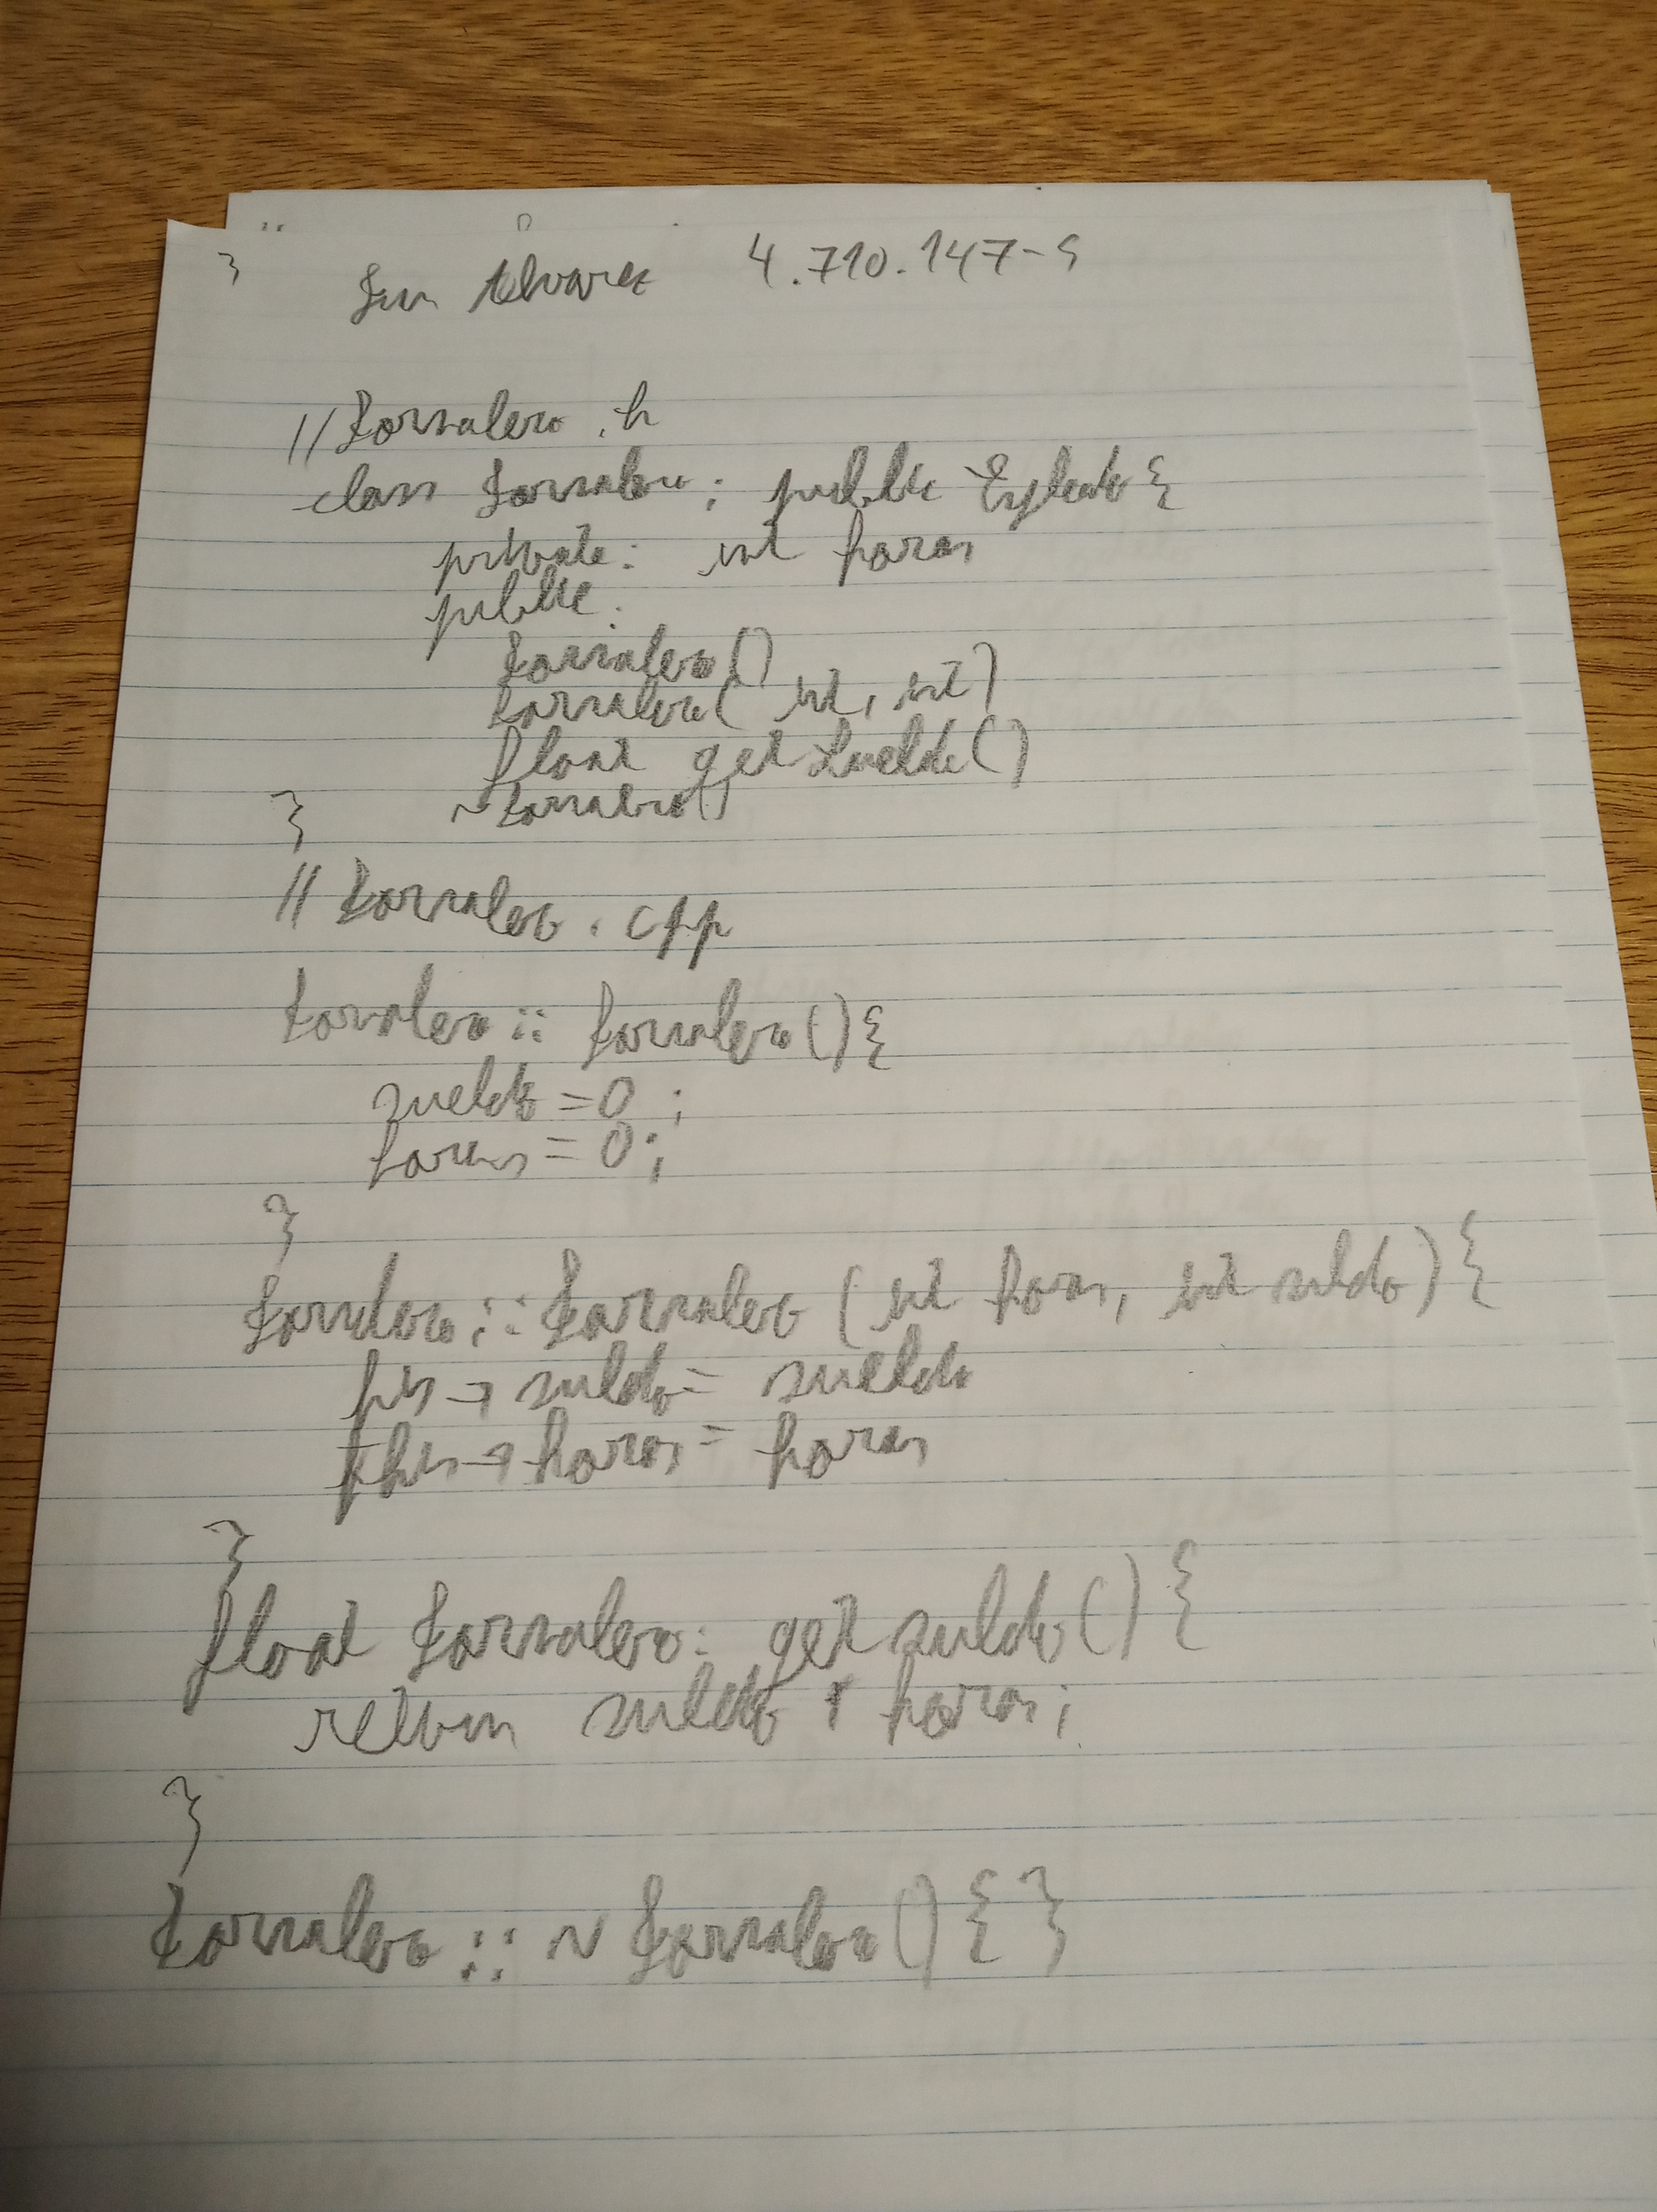 } Juan Alvarez 4.710.147-9
// Jornalero .h
class Jornalero : public Empleado {
private: int horas
public:
Jornalero()
Jornalero( int, int)
float getSueldo()
~Jornalero()
}
// Jornalero . cpp
Jornalero :: Jornalero() {
sueldo = 0 ;
horas = 0 ;
}
Jornalero :: Jornalero ( int horas, int sueldo) {
this -> sueldo = sueldo
this -> horas = horas
}
float Jornalero: getsueldo() {
return sueldo * horas ;
}
Jornalero :: ~ Jornalero() { }